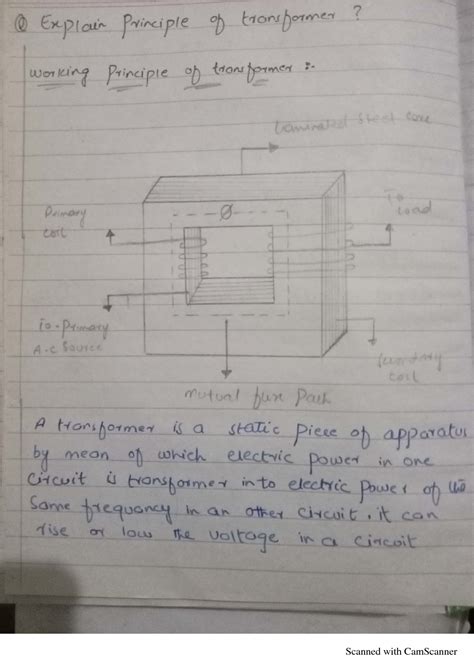 Q Explain Principle of transformer ?
working Principle of transformer :-
Laminated Steel Core
Primary
coil
Ø
To
Load
To-Primary
A-C Source
Secondary
coil
mutual flux Path
A transformer is a static piece of apparatus
by mean of which electric power in one
circuit is transformer in to electric power of the
Same frequency in an other circuit. it can
rise or low the voltage in a circuit
Scanned with CamScanner